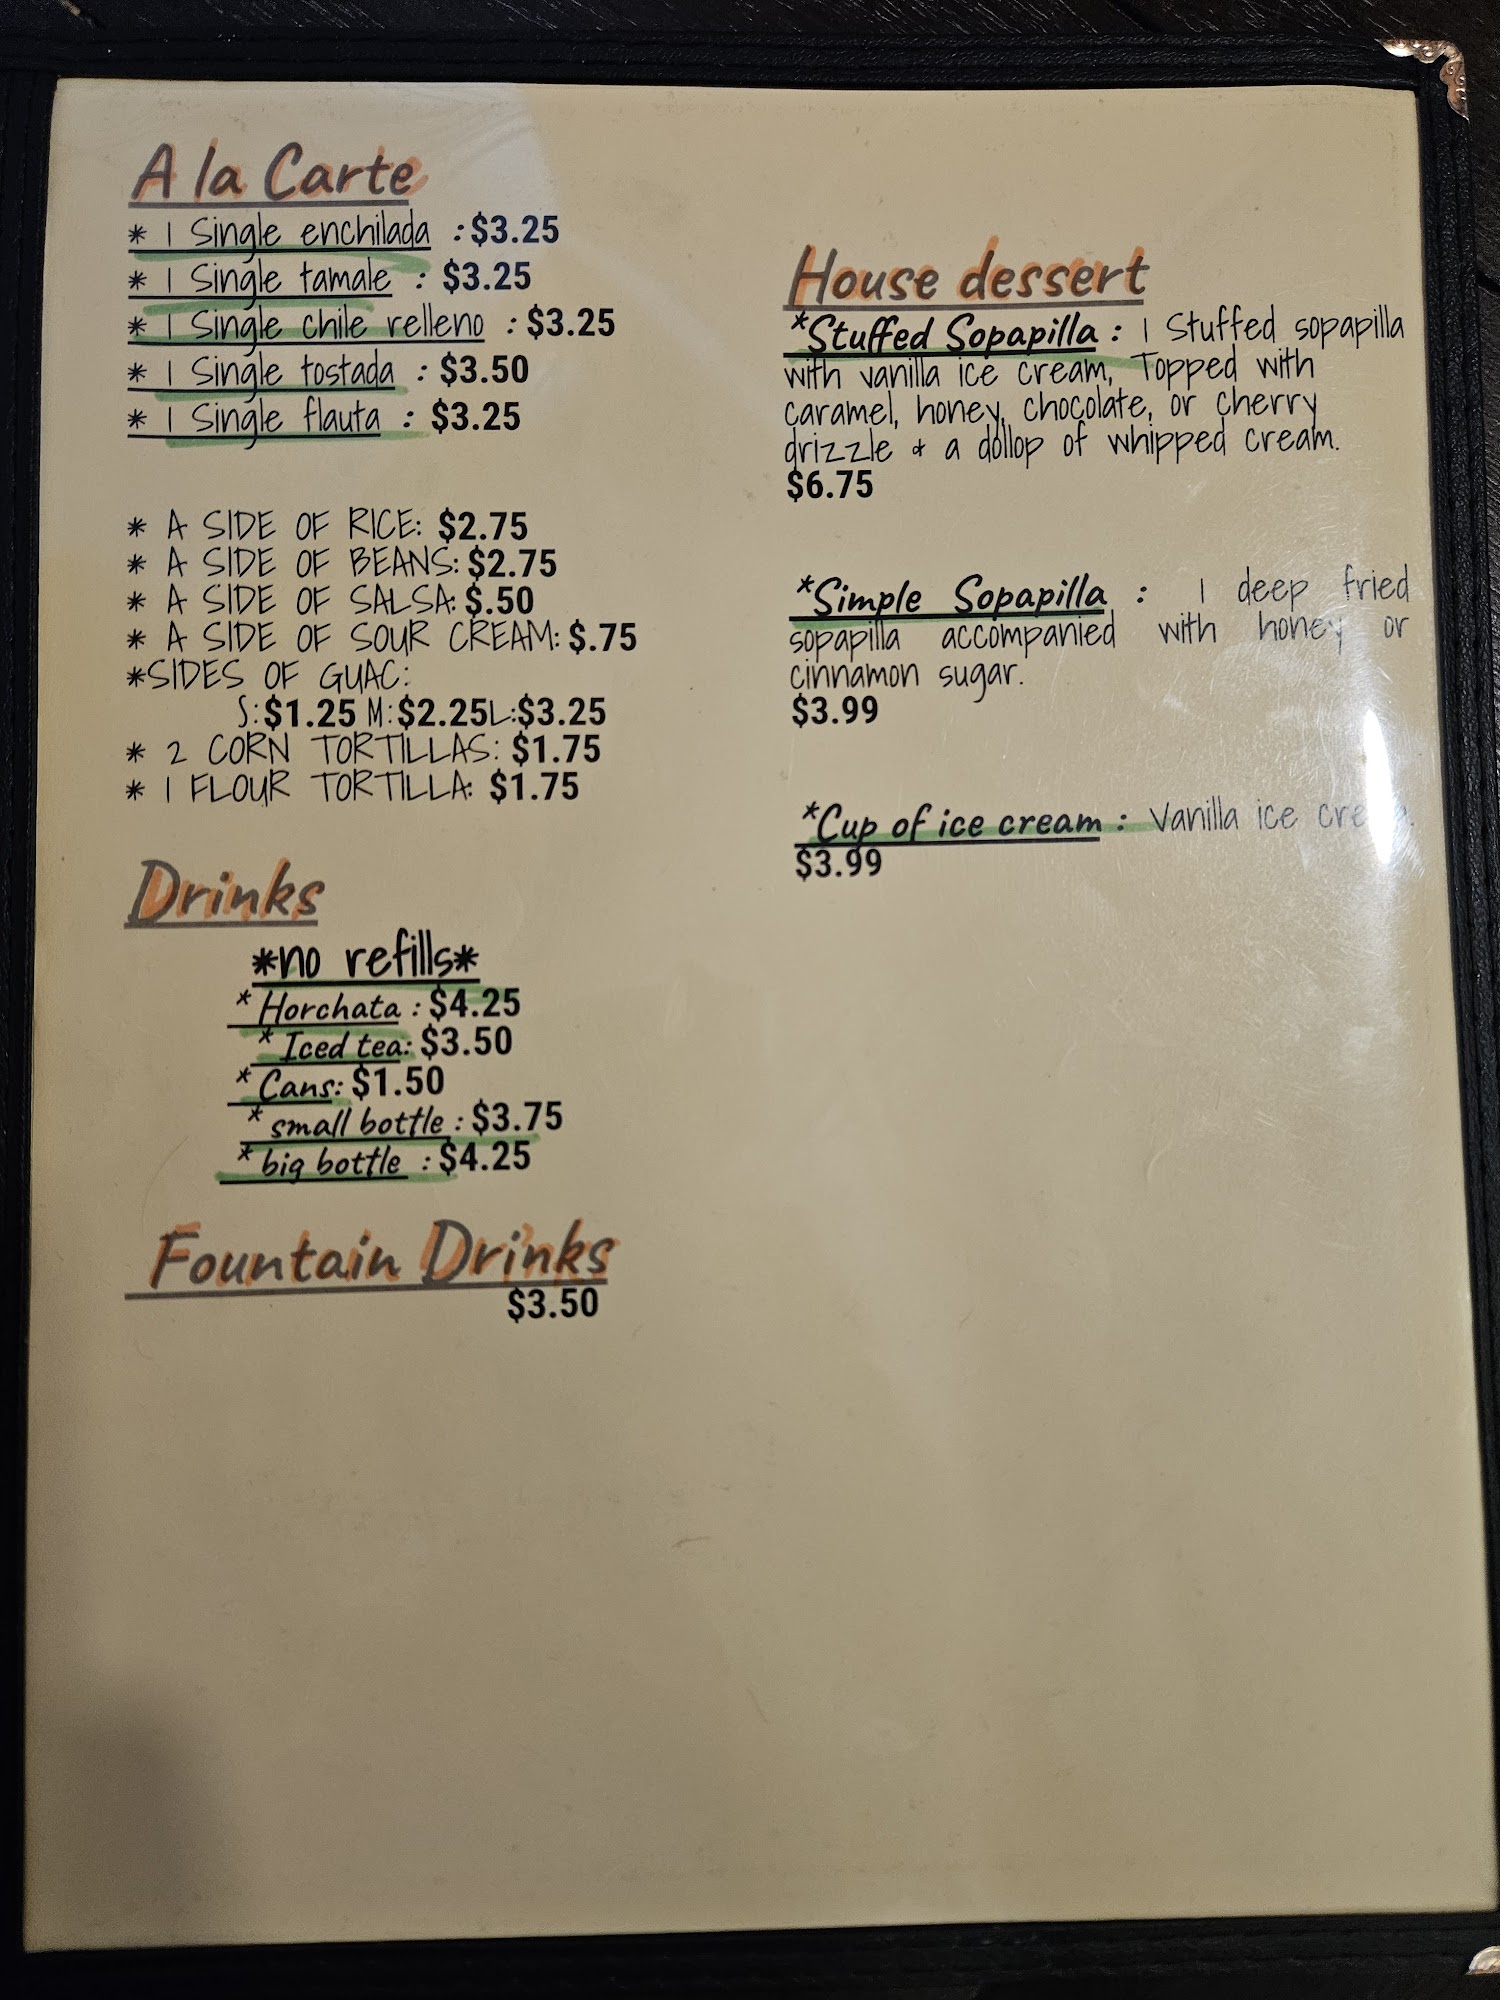 A la Carte
* 1 Single enchilada : $3.25
* 1 Single tamale : $3.25
* 1 Single chile relleno : $3.25
* 1 Single tostada : $3.50
* 1 Single flauta : $3.25
* A SIDE OF RICE: $2.75
* A SIDE OF BEANS: $2.75
* A SIDE OF SALSA: $.50
* A SIDE OF SOUR CREAM: $.75
*SIDES OF GUAC:
S:$1.25 M:$2.25L:$3.25
* 2 CORN TORTILLAS: $1.75
* 1 FLOUR TORTILLA: $1.75
Drinks
*no refills*
* Horchata : $4.25
* Iced tea: $3.50
* Cans: $1.50
* small bottle : $3.75
* big bottle : $4.25
Fountain Drinks
$3.50
House dessert
*Stuffed Sopapilla : 1 Stuffed sopapilla
with vanilla ice cream, Topped with
caramel, honey, chocolate, or cherry
drizzle & a dollop of whipped cream.
$6.75
*Simple Sopapilla : 1 deep fried
sopapilla accompanied with honey or
cinnamon sugar.
$3.99
*Cup of ice cream : Vanilla ice cream.
$3.99